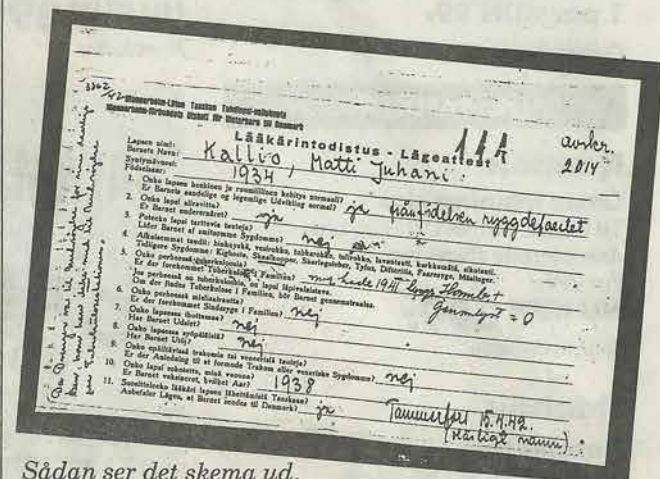 1 person 69,
3362/42
Mannerheim-Liiton Tanskan Tahdispol-valiokunta
Mannerheim-Förbundets Utskott för till Danmark
Lääkärintodistus - Lägeattest
117
avskr.
2014
Lapsen nimi:
Barnets Navn: Kallio, Matti Juhani.
Syntymävuosi:
Födselsaar: 1934
1. Onko lapsen henkinen ja ruumiillinen kehitys normaali?
Er Barnets aandelige og legemlige Udvikling normal? ja från födelsen ryggdefectet
2. Onko lapsi aliravittu?
Er Barnet underernæret? ja
3. Poteeko lapsi tarttuvia tauteja?
Lider Barnet af smitsomme Sygdomme? nej
4. Aikaisemmat taudit: hinkuyskä, vesirokko, tuhkarokko, tulirokko, lavantauti, kurkkumätä, sikotauti.
Tidligere Sygdomme: Kighoste, Skaalkopper, Skarlagsfeber, Tyfus, Difteritis, Faaresyge, Mæslinger.
5. Onko perheessä tuberkuloosia?
Er der forekommet Tuberkulose i Familien? 1941
Jos perheessä on tuberkuloosia, on lapsi läpivalaistava.
Om der findes Tuberkulose i Familien, bör Barnet gennemstraales. Genomlyst = 0
6. Onko perheessä mielisairautta?
Er der forekommet Sindssyge i Familien? nej
7. Onko lapsessa ihottumaa?
Har Barnet Udslet? nej
8. Onko lapsessa syöpäläisiä?
Har Barnet Utöj? nej
9. Onko epäiltävissä trakomia tai veneerisiä tauteja?
Er der Anledning til at formode Trakom eller veneriske Sygdomme? nej
10. Onko lapsi rokotettu, minä vuonna?
Er Barnet vaksineret, hvilket Aar? 1938
11. Suositteleeko lääkäri lapsen lähettämistä Tanskaan?
Anbefaler Lægen, at Barnet sendes til Danmark? ja
Tammerfors 15.4.42.
(Härligt namn)
Sådan ser det skema ud,